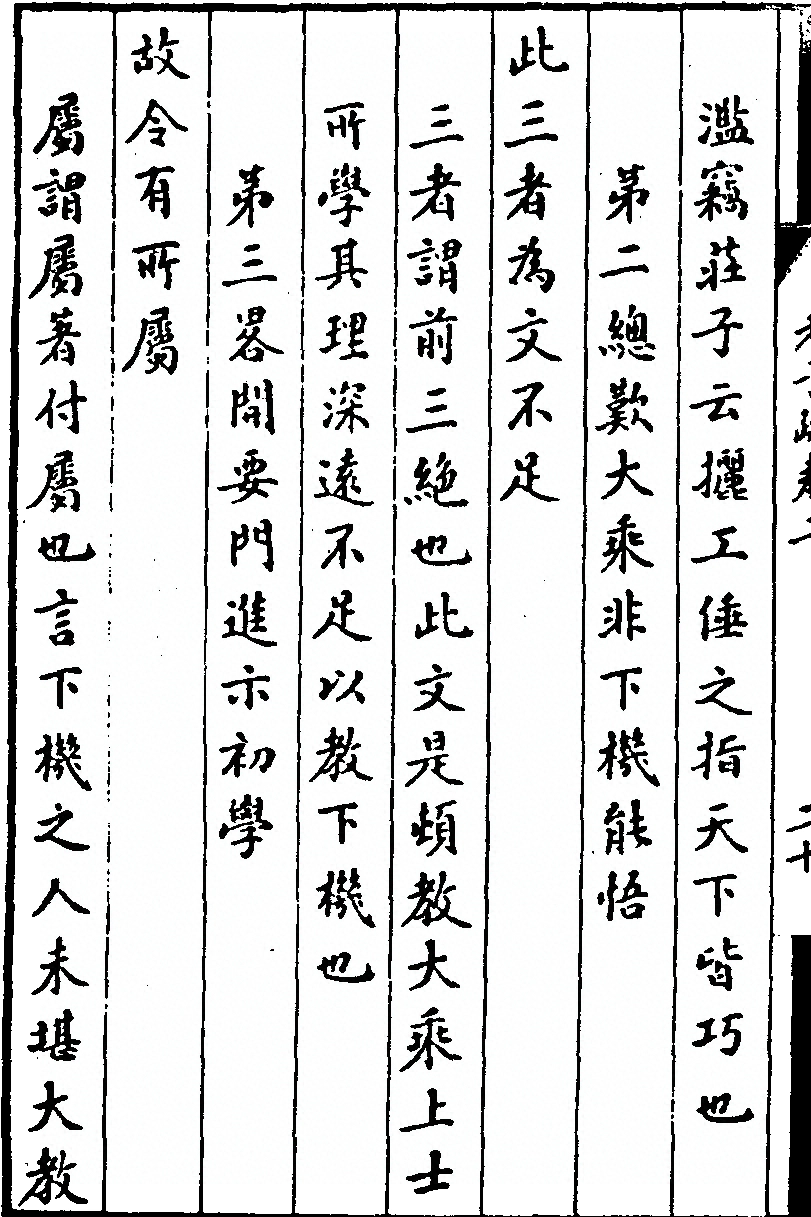 濫竊莊子云攦工倕之指天下皆巧也
第二總歎大乘非下機能悟
此三者為文不足
三者謂前三絶也此文是頓教大乘上士
所學其理深遠不足以教下機也
第三畧開要門進示初學
故令有所屬
屬謂屬著付屬也言下機之人未堪大教